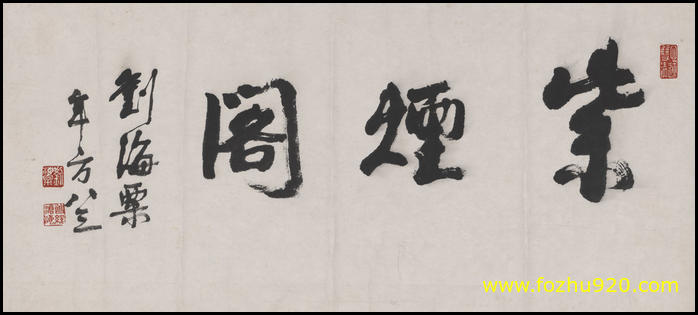 紫煙閣
劉海粟
年方八三
www.fozhu920.com